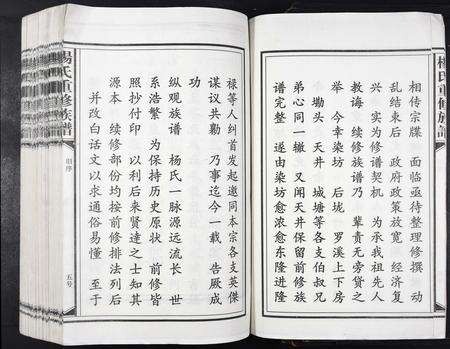 楊氏重修族譜
相传宗牒 面临亟待整理修撰 动
乱结束后 政府政策放宽 经济复
兴 实为修谱契机 为承我祖先人
教诲 续修族谱乃 辈责无旁贷之
举 今幸染坊 后垅 罗溪上下房
坳头 天井 城塘等各支伯叔兄
弟心同一辙 又闻天井保留前修族
谱完整 遂由染坊愈浓愈东隆进隆
禄等人纠首发起邀同本宗各支英傑
谋议共勷 乃事迄今一载 告厥成
功
纵观族谱 杨氏一脉源远流长 世
系浩繁 为保持历史原状 前修皆
照抄付印 以利后来贤达之士知其
源本 续修部份均按前修排法列后
并改白话文以求通俗易懂 至于
楊氏重修族譜
五号